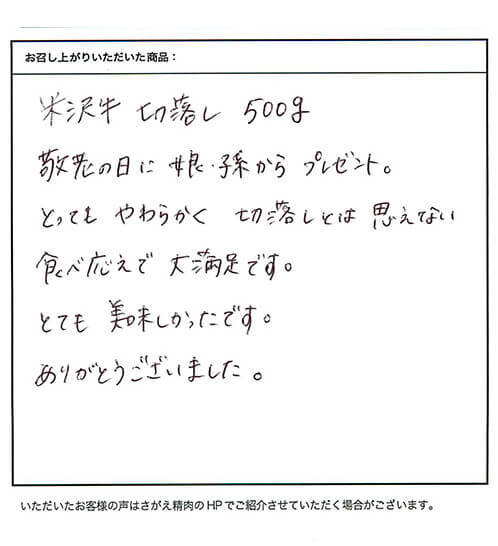 お召し上がりいただいた商品：
米沢牛 切落し 500g
敬老の日に 娘・孫から プレゼント。
とっても やわらかく 切落しとは 思えない
食べ応えで 大満足です。
とても 美味しかったです。
ありがとうございました。
いただいたお客様の声はさがえ精肉のHPでご紹介させていただく場合がございます。